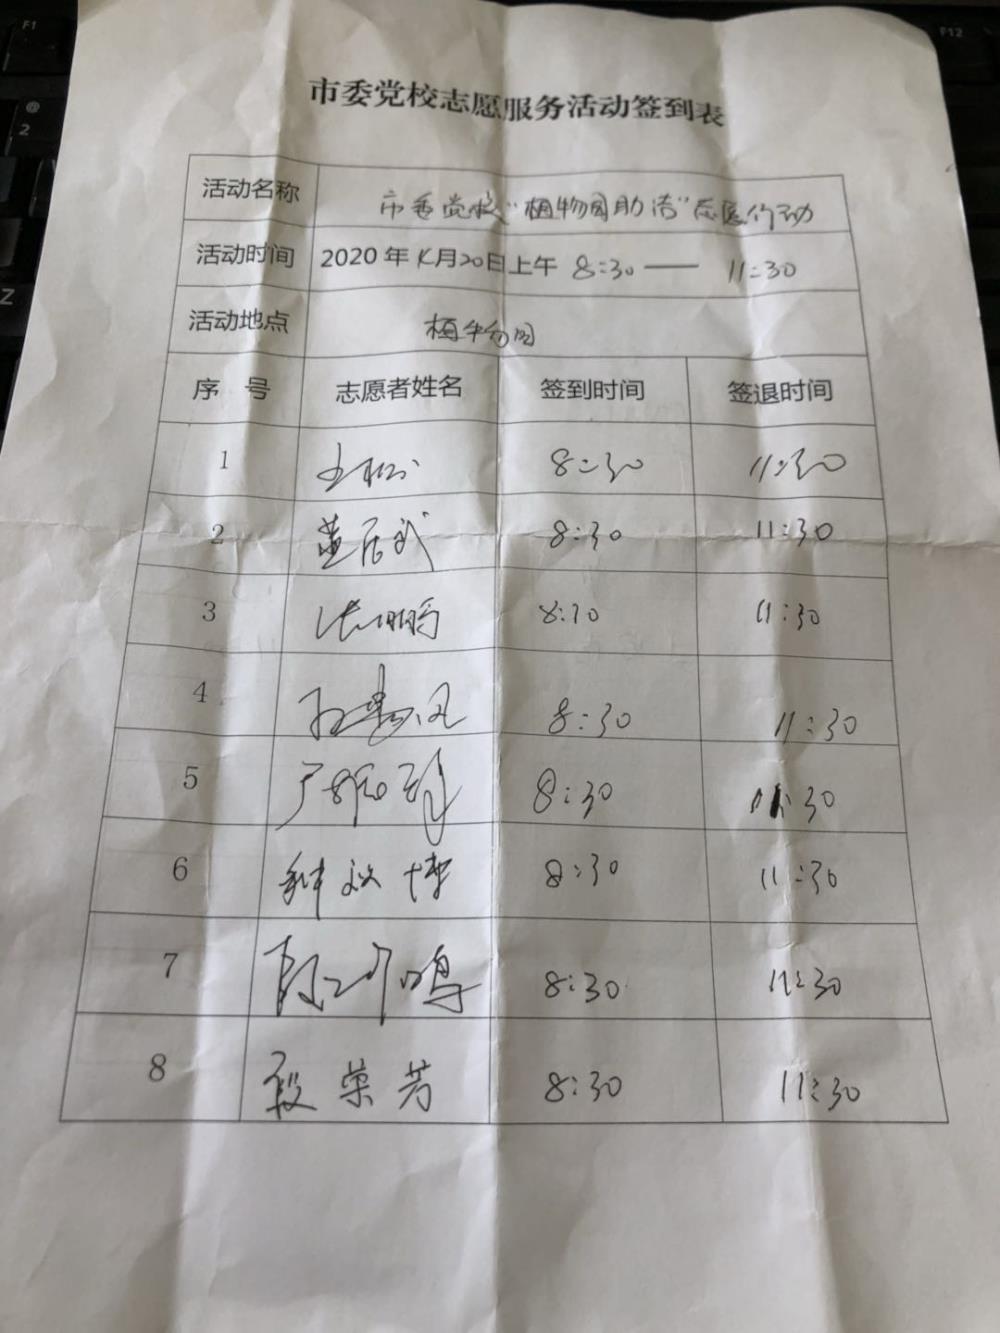 市委党校志愿服务活动签到表
活动名称 市委党校“植物园助洁”志愿行动
活动时间 2020年 月20日上午 8:30 — 11:30
活动地点 植物园
序 号 志愿者姓名 签到时间 签退时间
1 8:30 11:30
2 8:30 11:30
3 张鹏 8:30 11:30
4 8:30 11:30
5 8:30 11:30
6 8:30 11:30
7 鸣 8:30 11:30
8 段荣芳 8:30 11:30
F1
@
2
Z
F12